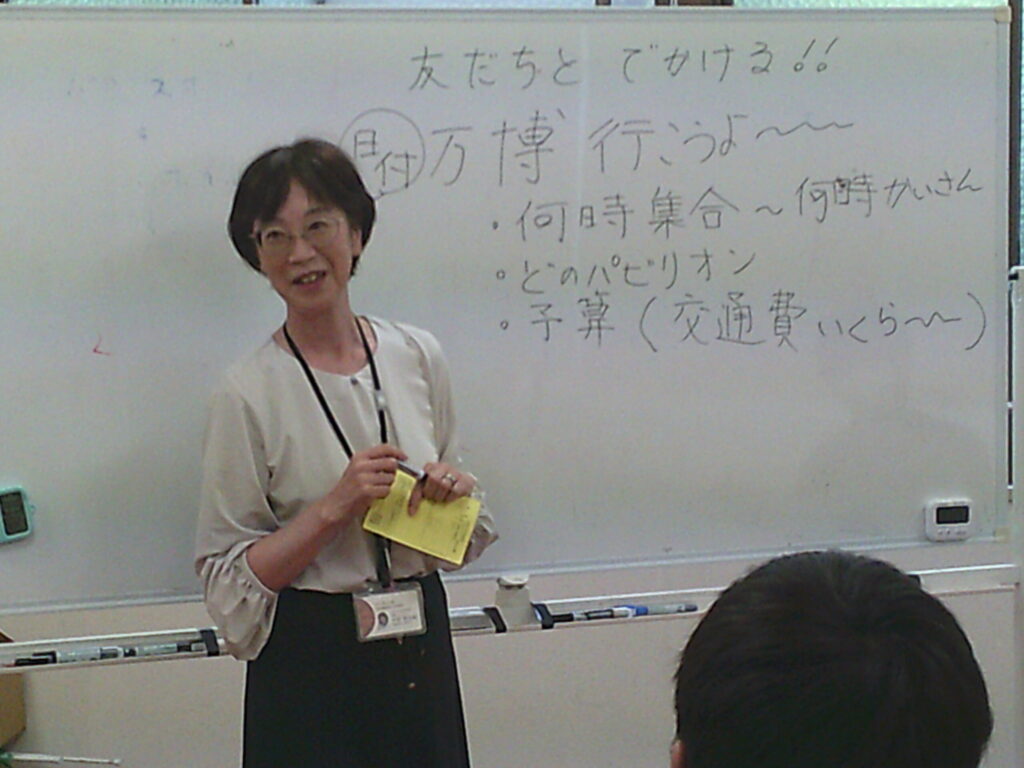 友だちと でかける!!
日付 万博 行こうよ〜〜
・何時集合〜何時かいさん
・どのパビリオン
・予算(交通費いくら〜〜)